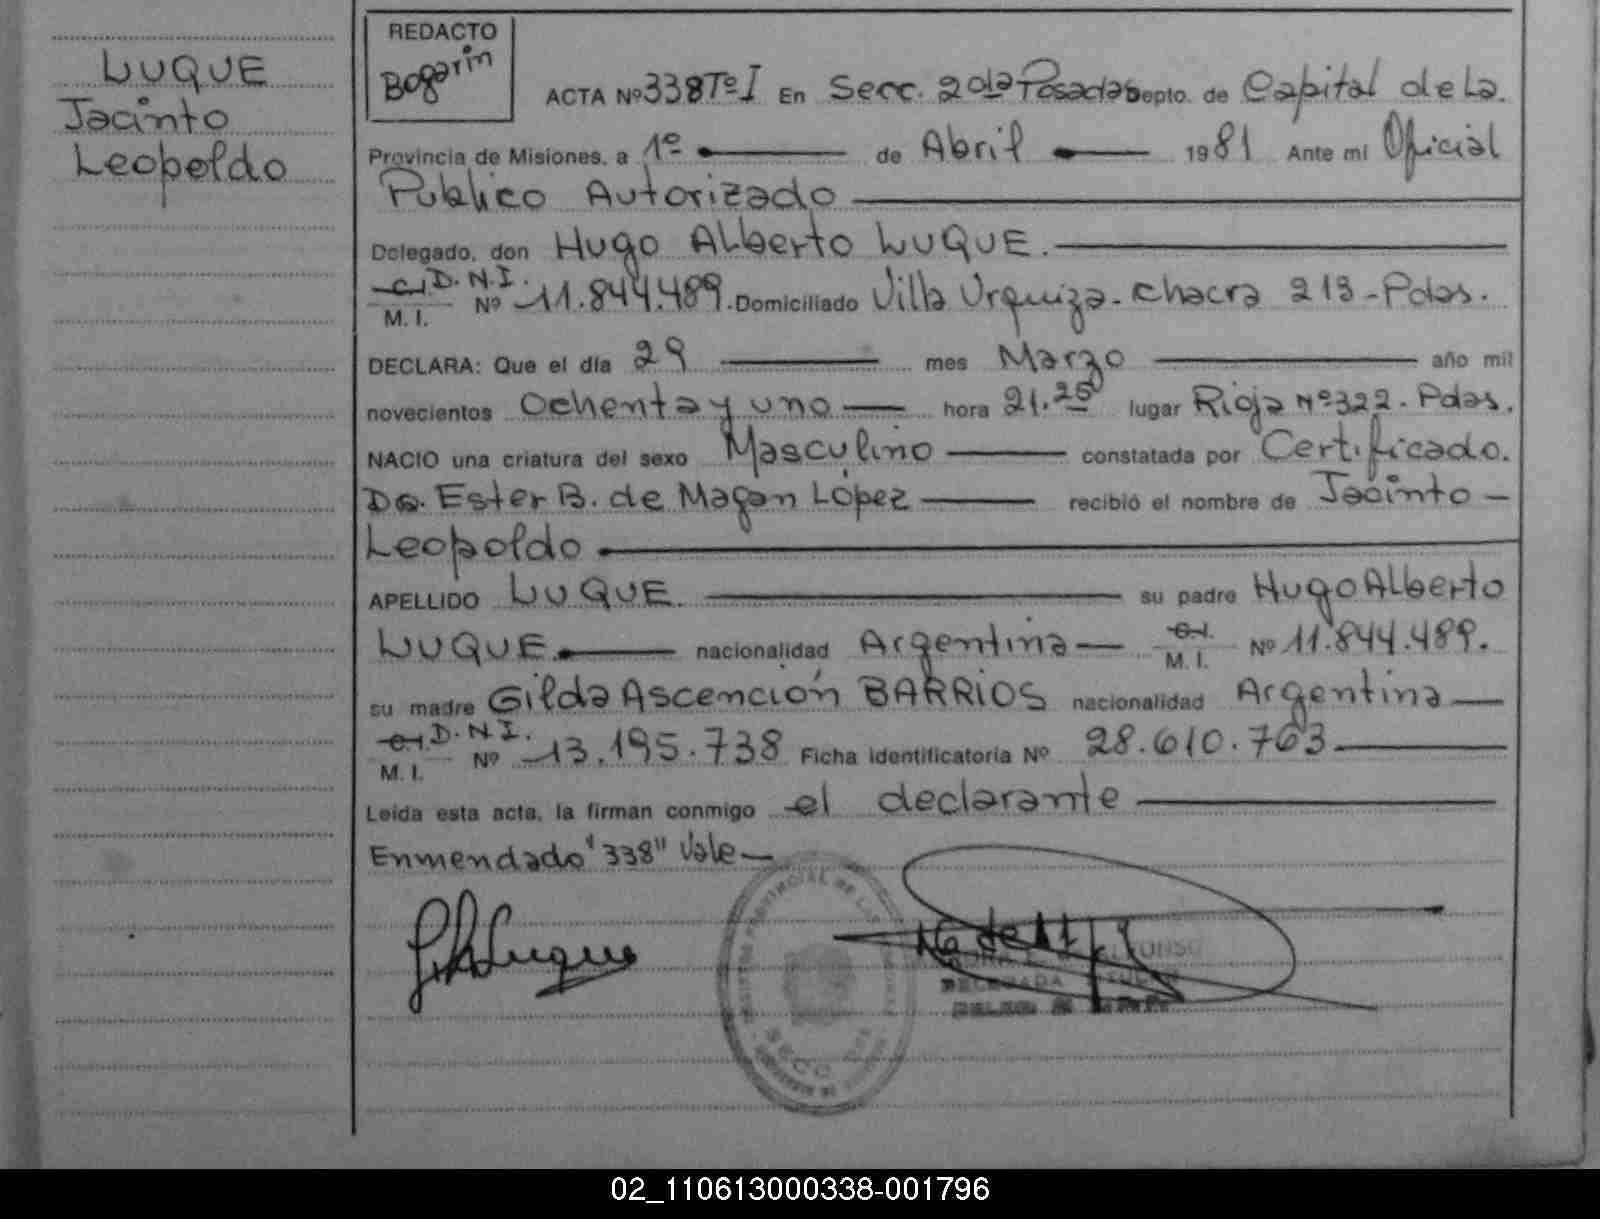 LUQUE
Jacinto
Leopoldo
REDACTO
Bogarin
ACTA Nº 338 Tº I En Secc. 2da Posadas Depto. de Capital de La.
Provincia de Misiones, a 1º de Abril 1981 Ante mi Oficial
Publico Autorizado
Delegado, don Hugo Alberto LUQUE.
C.I. D.N.I.
M. I. Nº 11.844.489. Domiciliado Villa Urquiza. Chacra 213 - Pdas.
DECLARA: Que el día 29 mes Marzo año mil
novecientos Ochenta y uno hora 21.25 lugar Rioja Nº 322. Pdas.
NACIO una criatura del sexo Masculino constatada por Certificado.
Da. Ester B. de Magan López recibió el nombre de Jacinto
Leopoldo
APELLIDO LUQUE. su padre Hugo Alberto
LUQUE. nacionalidad Argentina C.I. M. I. Nº 11.844.489.
su madre Gilda Ascención BARRIOS nacionalidad Argentina
C.I. D.N.I.
M. I. Nº 13.195.738 Ficha Identificatoria Nº 28.610.763
Leída esta acta, la firman conmigo el declarante
Enmendado "338" Vale
Luque
REGISTRO PROVINCIAL DE LAS
SECC
DELEGADA TITULAR
02_110613000338-001796